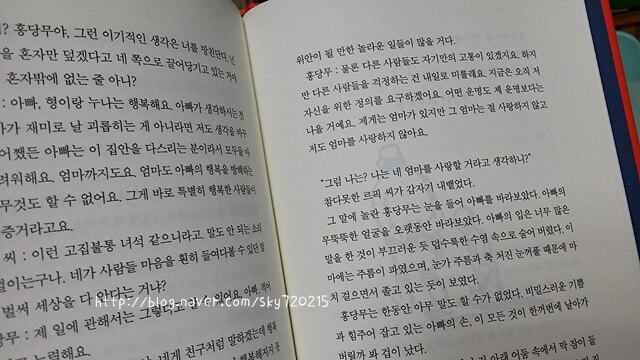 ? 홍당무야, 그런 이기적인 생각은 너를 망친단다. 넌
을 혼자만 덮겠다고 네 쪽으로 끌어당기고 있는 거야.
혼자밖에 없는 줄 아니?
: 아빠, 형이랑 누나는 행복해요. 아빠가 생각하시는 것
가 재미로 날 괴롭히는 게 아니라면 저도 생각을 바꾸
어쨌든 아빠는 이 집안을 다스리는 분이라서 모두들 아
려워해요. 엄마까지도요. 엄마도 아빠의 행복을 방해하는
무것도 할 수 없어요. 그게 바로 특별히 행복한 사람들이
증거라고요.
씨 : 이런 고집불통 녀석 같으니라고. 말도 안 되는 소리
이는구나. 네가 사람들 마음을 훤히 들여다볼 수 있단 말
벌써 세상을 다 안다는 거냐?
무 : 제 일에 관해서는 그렇다고
요. 아빠. 적어
노력해요.
네게 친구처럼 말하겠는데 행복
행복해지지 못
위안이 될 만한 놀라운 일들이 많을 거다.
홍당무 : 물론 다른 사람들도 자기만의 고통이 있겠지요. 하지
만 다른 사람들을 걱정하는 건 내일로 미룰래요. 지금은 오직 저
자신을 위한 정의를 요구하겠어요. 어떤 운명도 제 운명보다는
나을 거예요. 제게는 엄마가 있지만 그 엄마는 절 사랑하지 않고
저도 엄마를 사랑하지 않아요.
“그럼 나는? 나는 네 엄마를 사랑할 거라고 생각하니?”
참다못한 르픽 씨가 갑자기 내뱉었다.
그 말에 놀란 홍당무는 눈을 들어 아빠를 바라보았다. 아빠의
무뚝뚝한 얼굴을 오랫동안 바라보았다. 아빠의 입은 너무 많은
말을 한 것이 부끄러운 듯 덥수룩한 수염 속으로 숨어 버렸다. 이
마에는 주름이 파였으며, 눈가 주름과 축 처진 눈꺼풀 때문에 마
치 걸으면서 졸고 있는 듯이 보였다.
홍당무는 한동안 아무 말도 할 수가 없었다. 비밀스러운 기쁨
과 힘주어 잡고 있는 아빠의 손, 이 모든 것이 한꺼번에 날아가
버릴까 봐 겁이 났다.
아래 어둠 속에서 막 잠이 들
http://blog.naver.com/sky720215